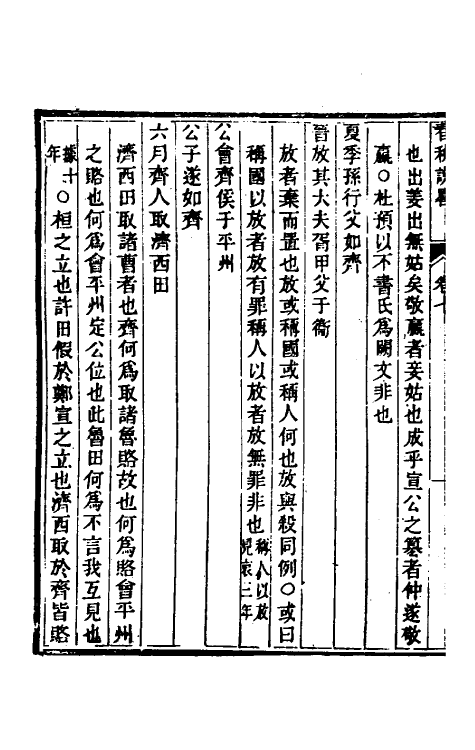 春秋說畧 卷七
也出姜出無姑矣敬嬴者妾姑也成乎宣公之篡者仲遂敬
嬴〇杜預以不書氏爲闕文非也
夏季孫行父如齊
晉放其大夫胥甲父于衞
放者棄而置也放或稱國或稱人何也放與殺同例〇或曰
稱國以放者放有罪稱人以放者放無罪非也稱人以放見哀三年
公會齊侯于平州
公子遂如齊
六月齊人取濟西田
濟西田取諸曹者也齊何爲取諸魯賂故也何爲賂會平州
之賂也何爲會平州定公位也此魯田何爲不言我互見也
據十年〇桓之立也許田假於鄭宣之立也濟西取於齊皆賂